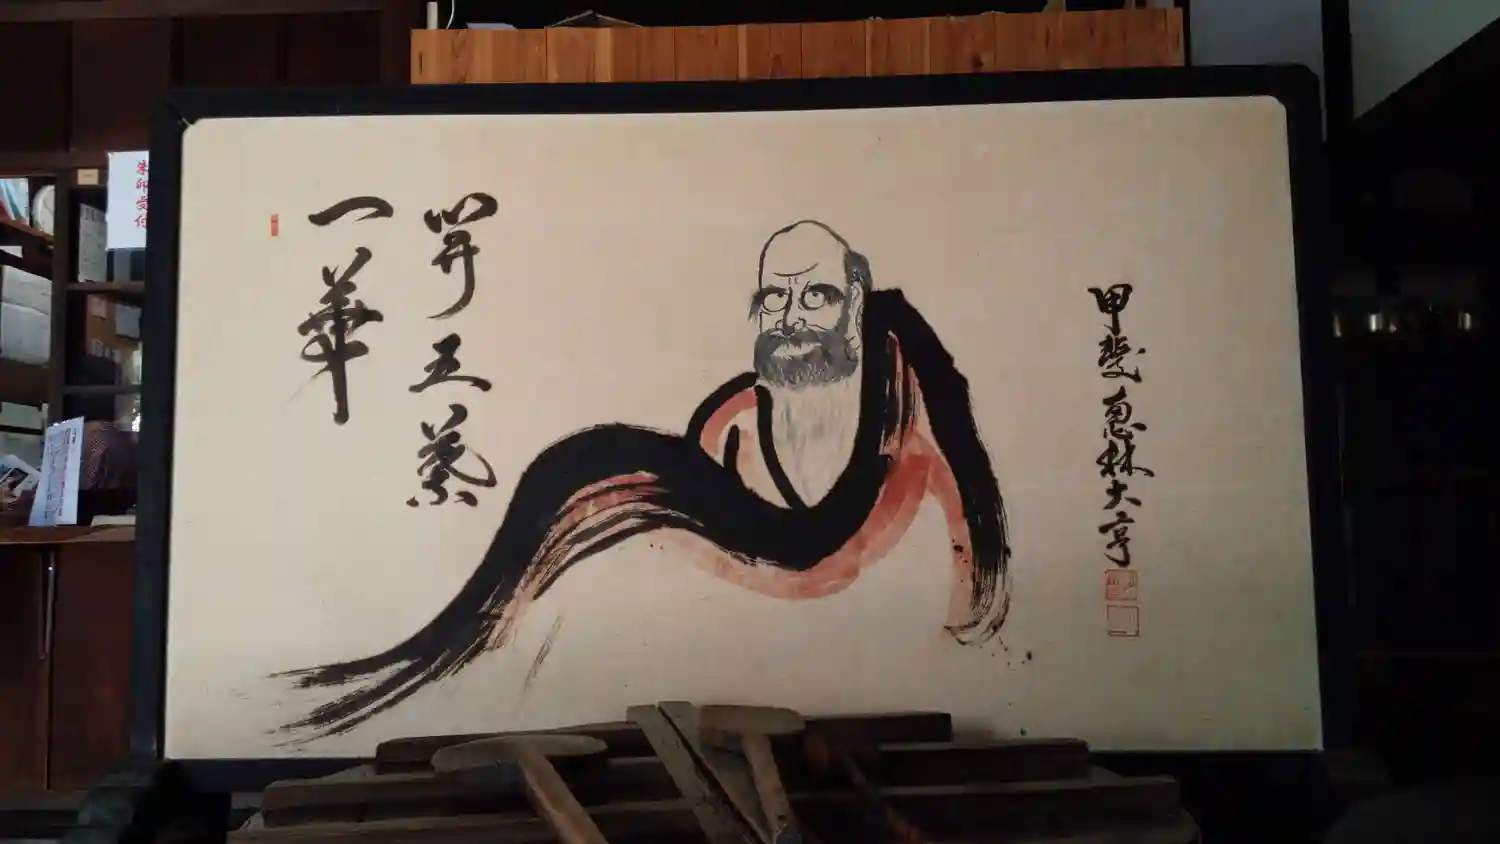 一華
開五葉
甲斐恵林大亨
朱印受付